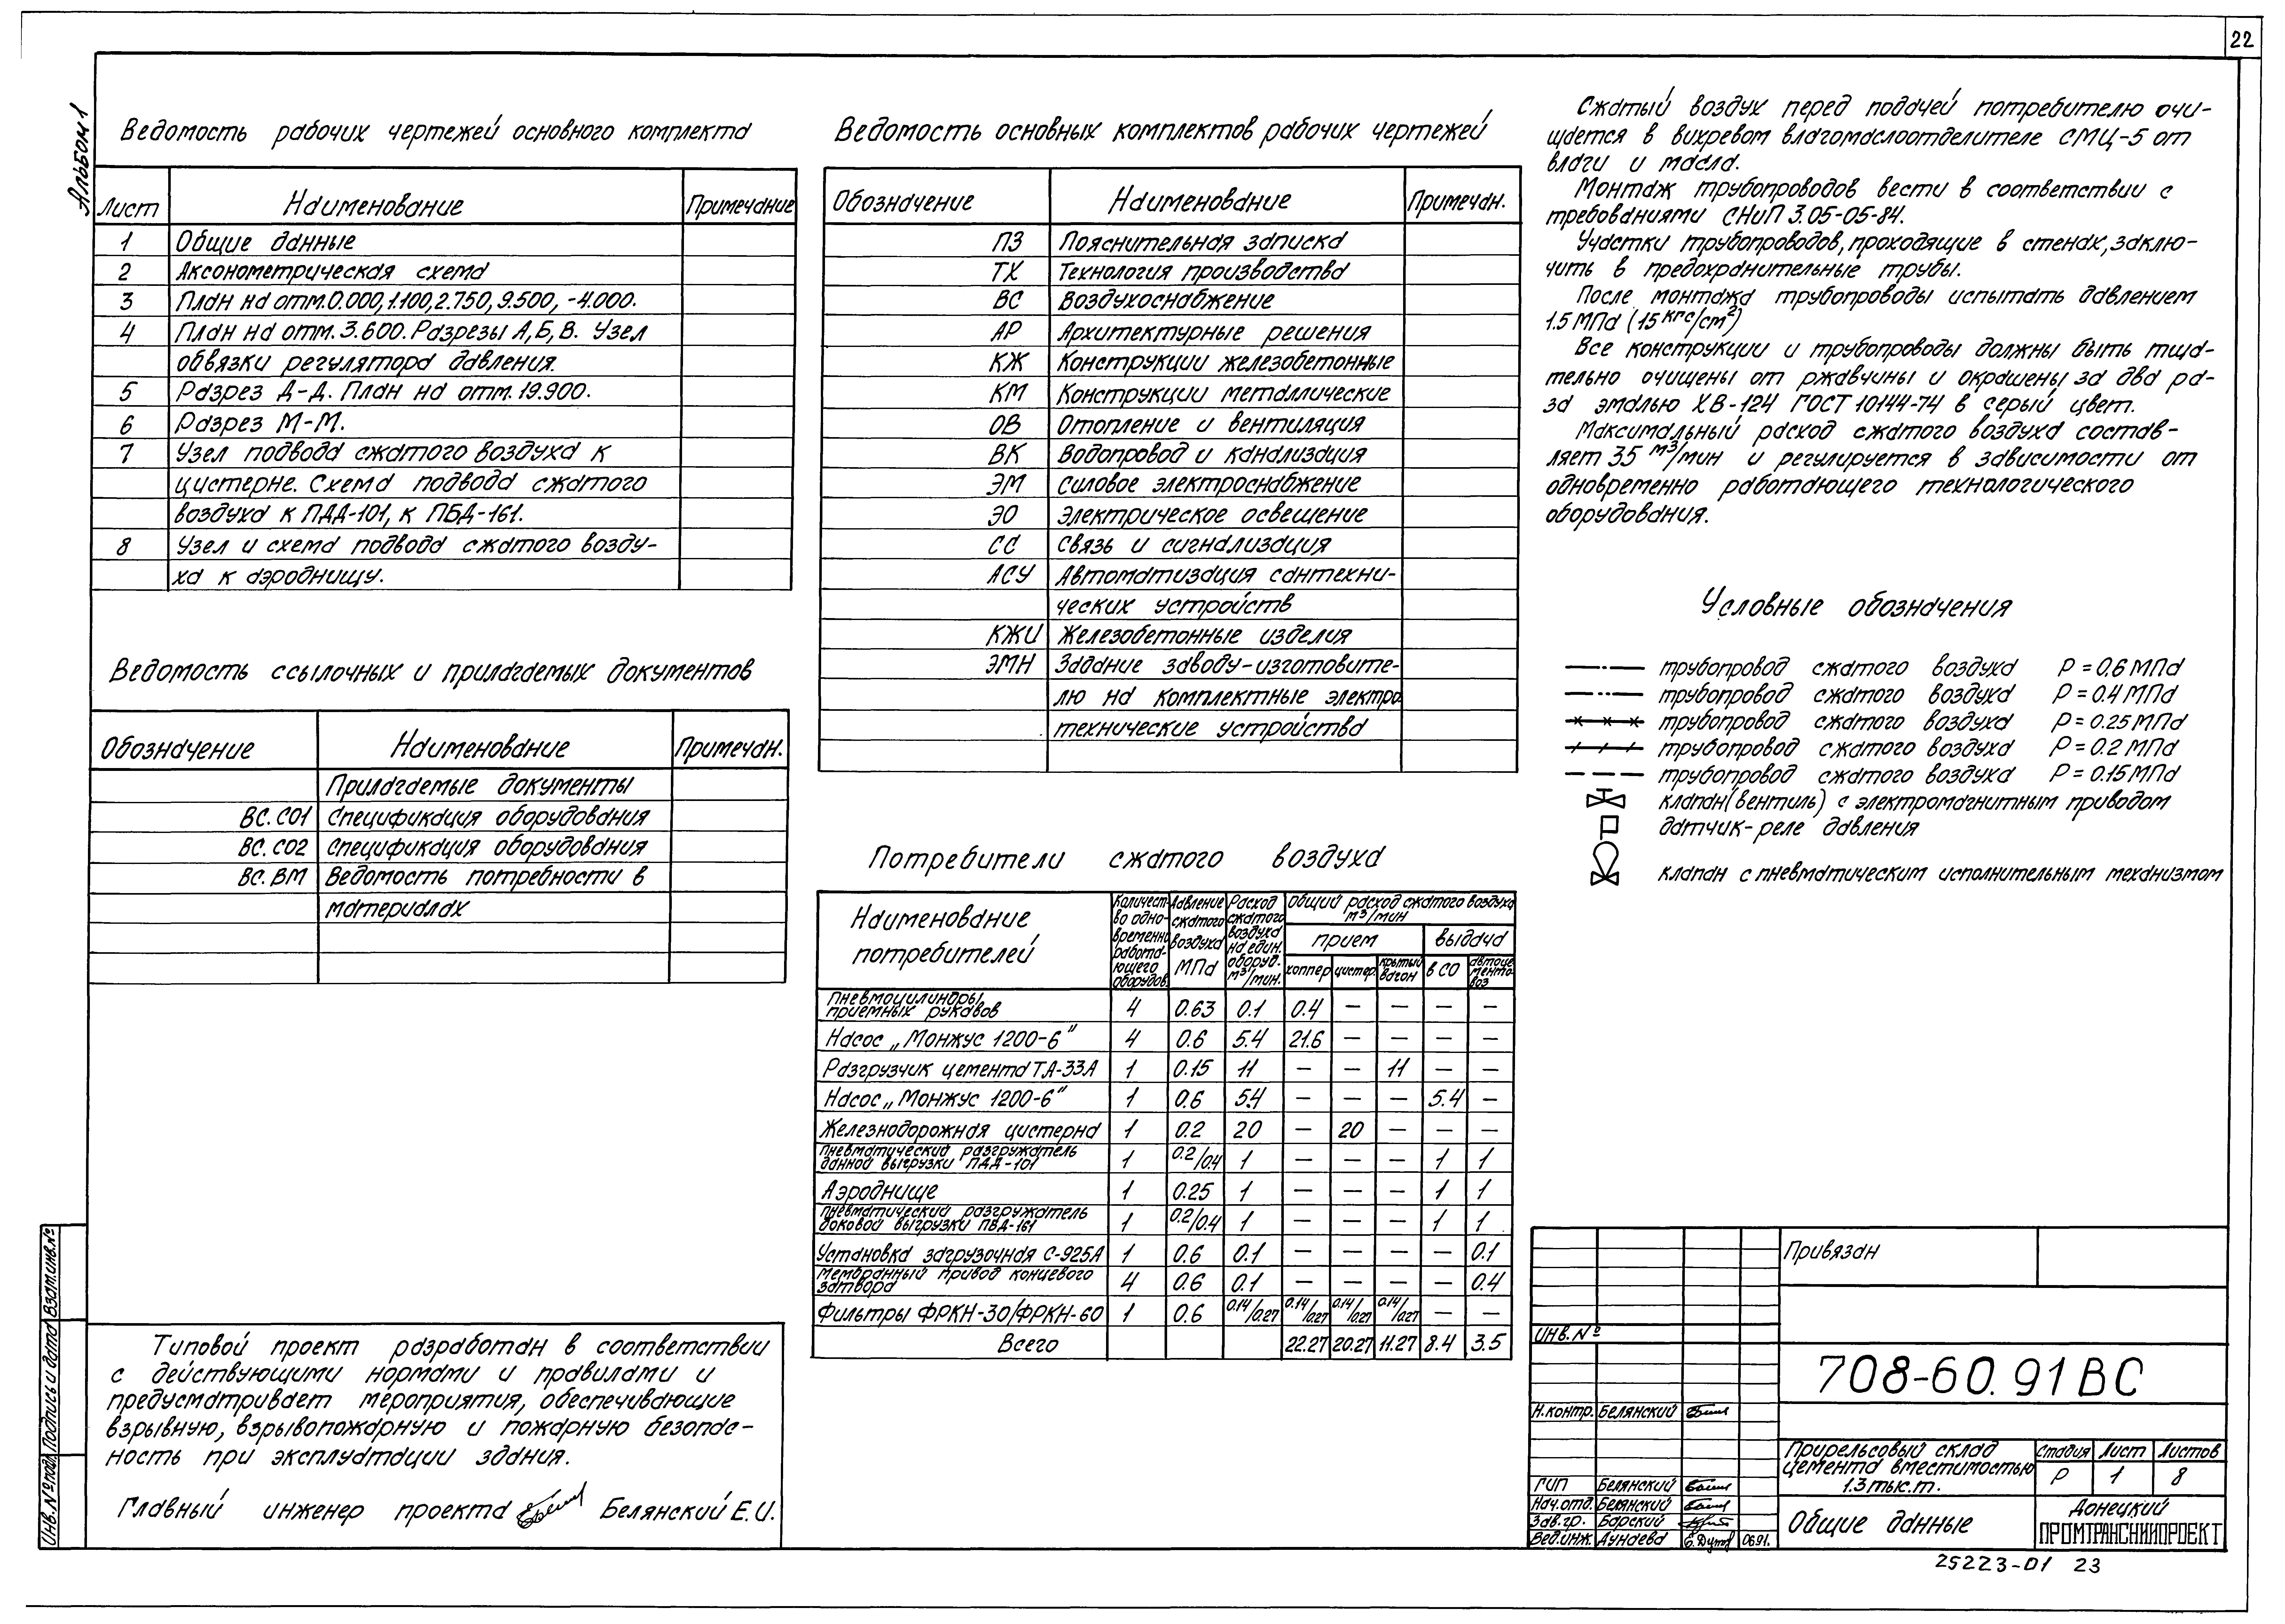 22
Альбом 1
Ведомость рабочих чертежей основного комплекта
Лист Наименование Примечание
1 Общие данные
2 Аксонометрическая схема
3 План на отм. 0.000, 1.100, 2.750, 9.500, -4.000.
4 План на отм. 3.600. Разрезы А, Б, В. Узел
обвязки регулятора давления.
5 Разрез Д-Д. План на отм. 19.900.
6 Разрез М-М.
7 Узел подвода сжатого воздуха к
цистерне. Схема подвода сжатого
воздуха к ПДД-101, к ПБД-161.
8 Узел и схема подвода сжатого возду-
ха к аэроднищу.
Ведомость ссылочных и прилагаемых документов
Обозначение Наименование Примечан.
Прилагаемые документы
ВС.СО1 Спецификация оборудования
ВС.СО2 Спецификация оборудования
ВС.ВМ Ведомость потребности в
материалах
Типовой проект разработан в соответствии
с действующими нормами и правилами и
предусматривает мероприятия, обеспечивающие
взрывную, взрывопожарную и пожарную безопас-
ность при эксплуатации здания.
Главный инженер проекта Белянский Е.И.
Инв. № подл. Подпись и дата Взам. инв. №
Ведомость основных комплектов рабочих чертежей
Обозначение Наименование Примечан.
ПЗ Пояснительная записка
ТХ Технология производства
ВС Воздухоснабжение
АР Архитектурные решения
КЖ Конструкции железобетонные
КМ Конструкции металлические
ОВ Отопление и вентиляция
ВК Водопровод и канализация
ЭМ Силовое электроснабжение
ЭО Электрическое освещение
СС Связь и сигнализация
АСУ Автоматизация сантехни-
ческих устройств
КЖИ Железобетонные изделия
ЭМН Задание заводу-изготовите-
лю на комплектные электро
технические устройства
Потребители сжатого воздуха
Наименование потребителей
Количест-во одно-временно работа-ющего оборудов.
Давление сжатого воздуха МПа
Расход сжатого воздуха на един. оборуд. м³/мин.
Общий расход сжатого воздуха м³/мин
прием выдача
хоппер цистер. крытый вагон в СО автоцементовоз
Пневмоцилиндры приемных рукавов 4 0.63 0.1 0.4 — — — —
Насос „Монжус 1200-6" 4 0.6 5.4 21.6 — — — —
Разгрузчик цемента ТА-33А 1 0.15 11 — — 11 — —
Насос „Монжус 1200-6" 1 0.6 5.4 — — — 5.4 —
Железнодорожная цистерна 1 0.2 20 — 20 — — —
Пневматический разгружатель данной выгрузки ПДД-101 1 0.2/0.4 1 — — — 1 1
Аэроднище 1 0.25 1 — — — 1 1
Пневматический разгружатель боковой выгрузки ПБД-161 1 0.2/0.4 1 — — — 1 1
Установка загрузочная С-925А 1 0.6 0.1 — — — — 0.1
Мембранный привод концевого затвора 4 0.6 0.1 — — — — 0.4
Фильтры ФРКН-30/ФРКН-60 1 0.6 0.14/0.27 0.14/0.27 0.14/0.27 0.14/0.27 — —
Всего 22.27 20.27 11.27 8.4 3.5
Сжатый воздух перед подачей потребителю очи-
щается в вихревом влагомаслоотделителе СМЦ-5 от
влаги и масла.
Монтаж трубопроводов вести в соответствии с
требованиями СНиП 3.05-05-84.
Участки трубопроводов, проходящие в стенах, заклю-
чить в предохранительные трубы.
После монтажа трубопроводы испытать давлением
1.5 МПа (15 кгс/см²)
Все конструкции и трубопроводы должны быть тща-
тельно очищены от ржавчины и окрашены за два ра-
за эмалью ХВ-124 ГОСТ 10144-74 в серый цвет.
Максимальный расход сжатого воздуха состав-
ляет 35 м³/мин и регулируется в зависимости от
одновременно работающего технологического
оборудования.
Условные обозначения
трубопровод сжатого воздуха Р = 0.6 МПа
трубопровод сжатого воздуха Р = 0.4 МПа
трубопровод сжатого воздуха Р = 0.25 МПа
трубопровод сжатого воздуха Р = 0.2 МПа
трубопровод сжатого воздуха Р = 0.15 МПа
клапан (вентиль) с электромагнитным приводом
датчик-реле давления
клапан с пневматическим исполнительным механизмом
Привязан
Инв. №
708-60.91 ВС
Н.контр. Белянский
ГИП Белянский
Нач.отд. Белянский
Зав.гр. Барский
Вед.инж. Дунаева 06.91.
Прирельсовый склад
цемента вместимостью
1.3 тыс.т.
Стадия Лист Листов
Р 1 8
Общие данные
Донецкий
ПРОМТРАНСНИИПРОЕКТ
25223-01 23